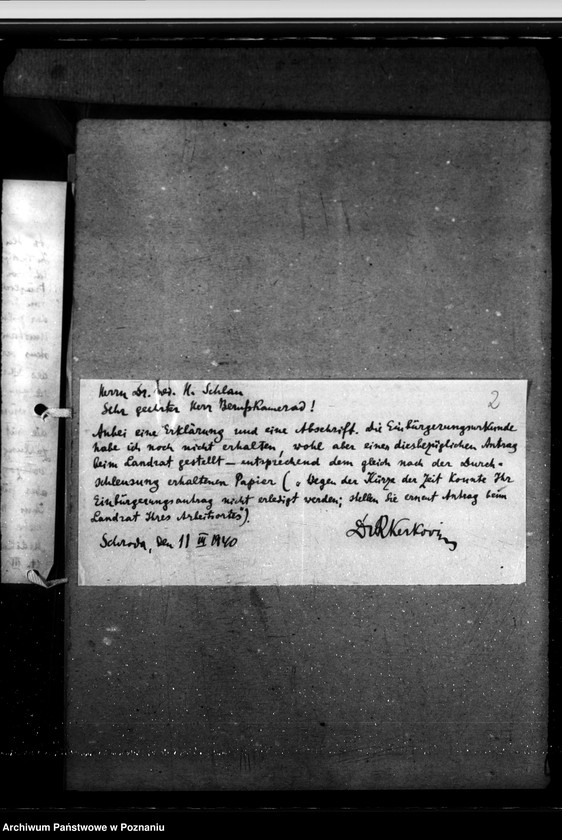 Herrn Dr. med. H. Schlau
Sehr geehrter Herr Berufskamerad!
2
Anbei eine Erklärung und eine Abschrift. Die Einbürgerungsurkunde
habe ich noch nicht erhalten, wohl aber einen diesbezüglichen Antrag
beim Landrat gestellt — entsprechend dem gleich nach der Durch-
schleusung erhaltenen Papier („Wegen der Kürze der Zeit konnte Ihr
Einbürgerungsantrag nicht erledigt werden; stellen Sie erneut Antrag beim
Landrat Ihres Arbeitsortes").
Schroda, den 11 III 1940
Dr R Kerkovius
Archiwum Państwowe w Poznaniu